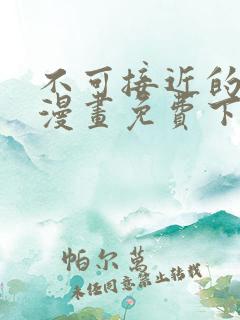 不可接近的
漫畫免費下
帕尔萬
未任同意禁止转载